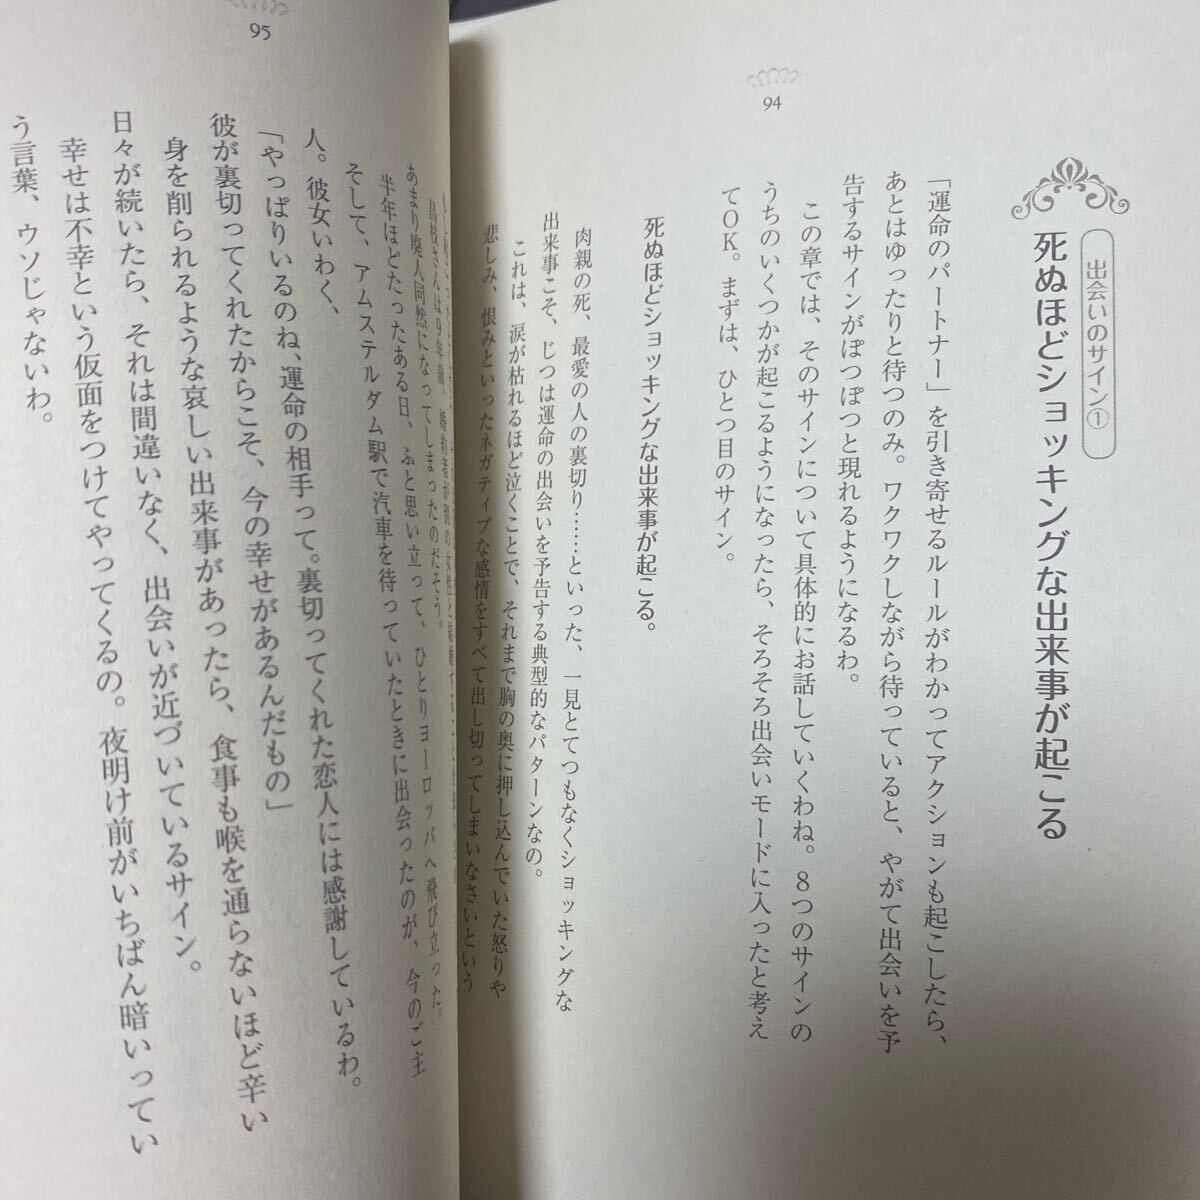 94
出会いのサイン①
死ぬほどショッキングな出来事が起こる
「運命のパートナー」を引き寄せるルールがわかってアクションも起こしたら、
あとはゆったりと待つのみ。ワクワクしながら待っていると、やがて出会いを予
告するサインがぽつぽつと現れるようになるわ。
この章では、そのサインについて具体的にお話していくわね。８つのサインの
うちのいくつかが起こるようになったら、そろそろ出会いモードに入ったと考え
てＯＫ。まずは、ひとつ目のサイン。
死ぬほどショッキングな出来事が起こる。
肉親の死、最愛の人の裏切り……といった、一見とてつもなくショッキングな
出来事こそ、じつは運命の出会いを予告する典型的なパターンなの。
これは、涙が枯れるほど泣くことで、それまで胸の奥に押し込んでいた怒りや
悲しみ、恨みといったネガティブな感情をすべて出し切ってしまいなさいという
95
晶枝さんは９年前、婚約者が別の女性と
あまり廃人同然になってしまったのだそう。
半年ほどたったある日、ふと思い立って、ひとりヨーロッパへ飛び立った。
そして、アムステルダム駅で汽車を待っていたときに出会ったのが、今のご主
人。彼女いわく、
「やっぱりいるのね、運命の相手って。裏切ってくれた恋人には感謝しているわ。
彼が裏切ってくれたからこそ、今の幸せがあるんだもの」
身を削られるような哀しい出来事があったら、食事も喉を通らないほど辛い
日々が続いたら、それは間違いなく、出会いが近づいているサイン。
幸せは不幸という仮面をつけてやってくるの。夜明け前がいちばん暗いってい
う言葉、ウソじゃないわ。